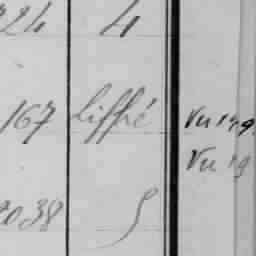 724 4
167 Liffré Vu 149
Vu 19
2038 5